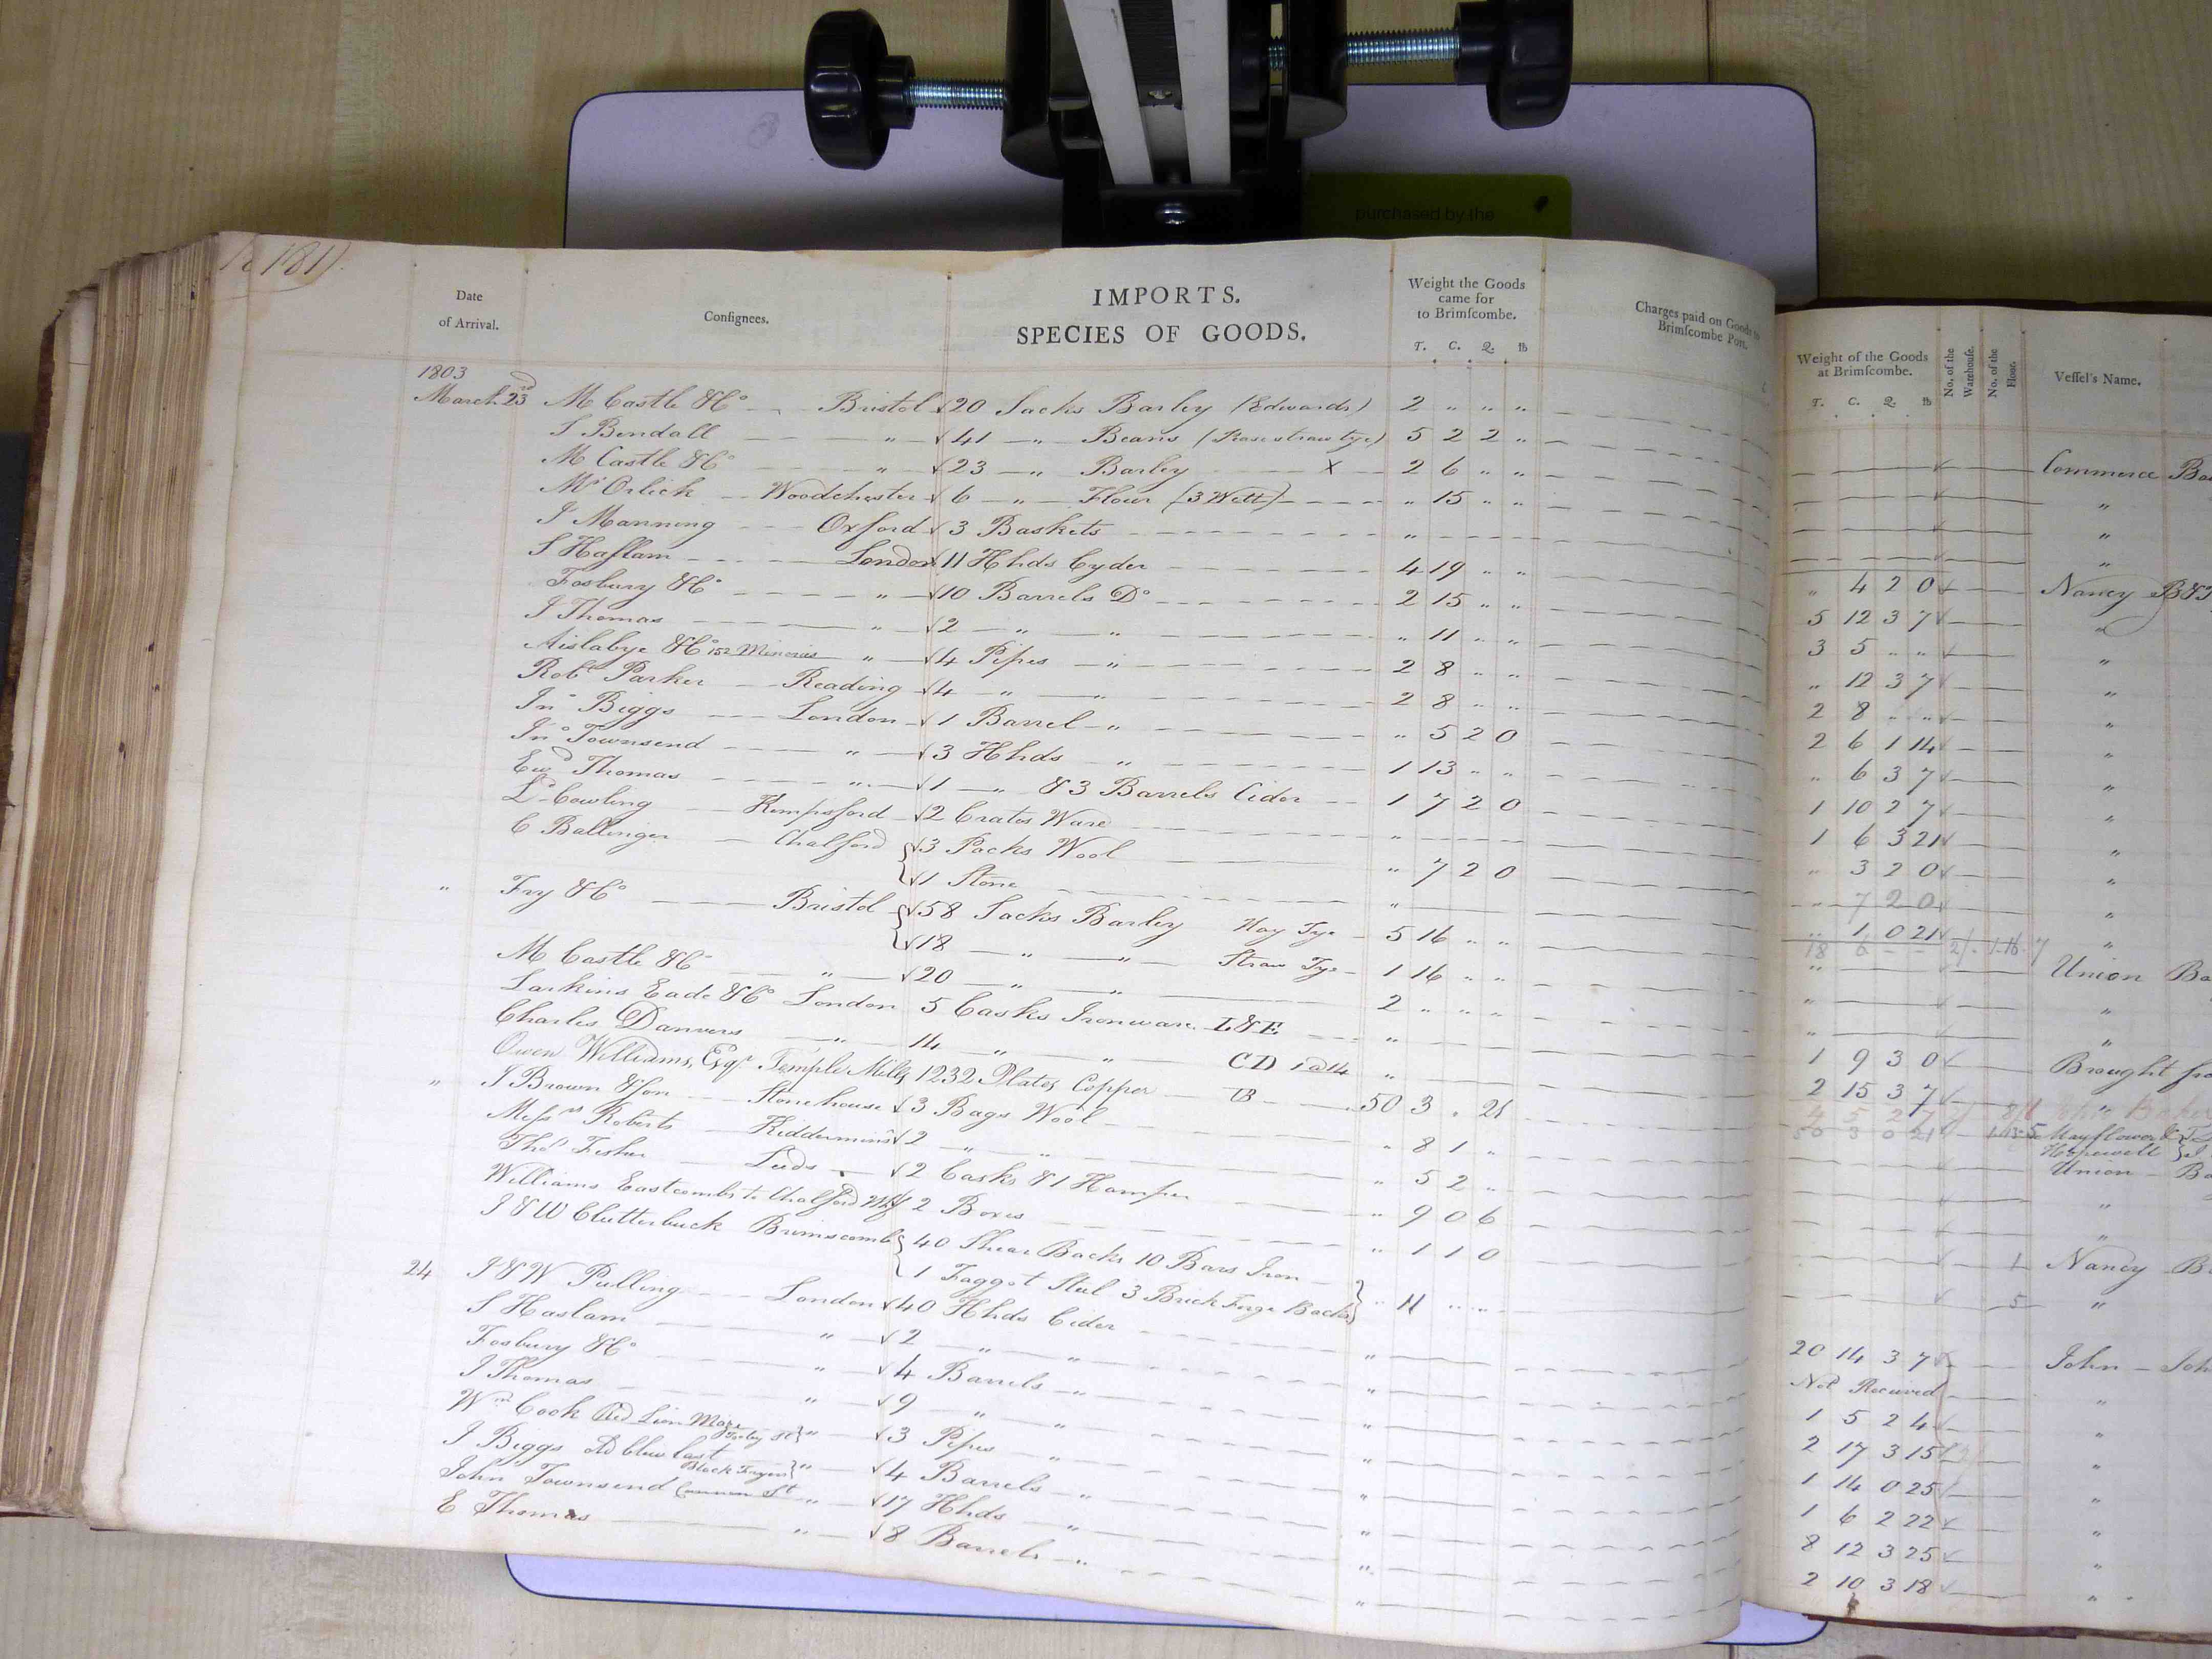 purchased by the
181
Date of Arrival. Consignees. IMPORTS. SPECIES OF GOODS. Weight the Goods came for to Brimscombe. T. C. Q. lb Charges paid on Goods to Brimscombe Port.
1803
March 23d M Castle & Co Bristol √ 20 Sacks Barley (Edwards) 2 " " "
S Bendall " √ 41 " Beans 5 2 2 "
M Castle & Co " √ 23 " Barley X 2 6 " "
Mr Orlick Woodchester √ 6 " Flour (3 Wett) " 15 " "
J Manning Oxford √ 3 Baskets "
S Haslam London √ 11 Hhds Cyder 4 19 " "
Fosbury & Co " √ 10 Barrels Do 2 15 " "
J Thomas " √ 2 " " " 11 " "
Aislabye & Co 152 Minories " √ 4 Pipes " 2 8 " "
Robt Parker Reading √ 4 " " 2 8 " "
Jno Biggs London √ 1 Barrel " " 5 2 0
Jno Townsend " √ 3 Hhds " 1 13 " "
Ewd Thomas " √ 1 " & 3 Barrels Cider 1 7 2 0
Cowling Kempsford √ 2 Crates Ware "
C Ballinger Chalford √ 3 Packs Wool " 7 2 0
√ 1 Stone "
" Fry & Co Bristol √ 58 Sacks Barley Hay Tye 5 16 " "
√ 18 " " Straw Tye 1 16 " "
M Castle & Co " √ 20 " " 2 " " "
Larkins Eade & Co London 5 Casks Ironware L&E "
Charles Danvers " 14 " " CD 1@14 "
Owen Williams, Esqr Temple Mills 1232 Plates Copper 50 3 " 21
" J Brown & Son Stonehouse √ 3 Bags Wool " 8 1 "
Messrs Roberts Kiddermins √ 2 " " " 5 2 "
Thos Fisher Leeds √ 2 Casks & 1 Hamper " 9 0 6
Williams Eastcombs to Chalford Whf 2 Boxes " 1 1 0
J & W Clutterbuck Brimscomb 40 Shear Backs 10 Bars Iron
1 Faggot Steel 3 Brick Forge Backs " 11 " "
24 J & W Pulling London √ 40 Hhds Cider "
S Haslam " √ 2 " " "
Fosbury & Co " √ 4 Barrels " "
J Thomas " √ 9 " " "
Wm Cook Red Lion " √ 3 Pipes " "
J Biggs Black Fryers " √ 4 Barrels " "
John Townsend " √ 17 Hhds " "
E Thomas " √ 8 Barrels " "
Weight of the Goods at Brimscombe. T. C. Q. lb No. of the Warehouse. No. of the Floor. Vessel's Name.
Commerce
"
"
"
" 4 2 0 Nancy
5 12 3 7 "
3 5 " " "
" 12 3 7 "
2 8 " " "
2 6 1 14 "
" 6 3 7 "
1 10 2 7 "
1 6 3 21 "
" 3 2 0 "
" 7 2 0 "
" 1 0 21 "
" Union
" "
" "
1 9 3 0 Brought
2 15 3 7 "
4 5 2 7
50 3 0 21 Mayflower &
Hopewell
Union
"
"
1 Nancy
5 "
20 14 3 7 John
Not Received "
1 5 2 4 "
2 17 3 15 "
1 14 0 25 "
1 6 2 22 "
8 12 3 25 "
2 10 3 18 "